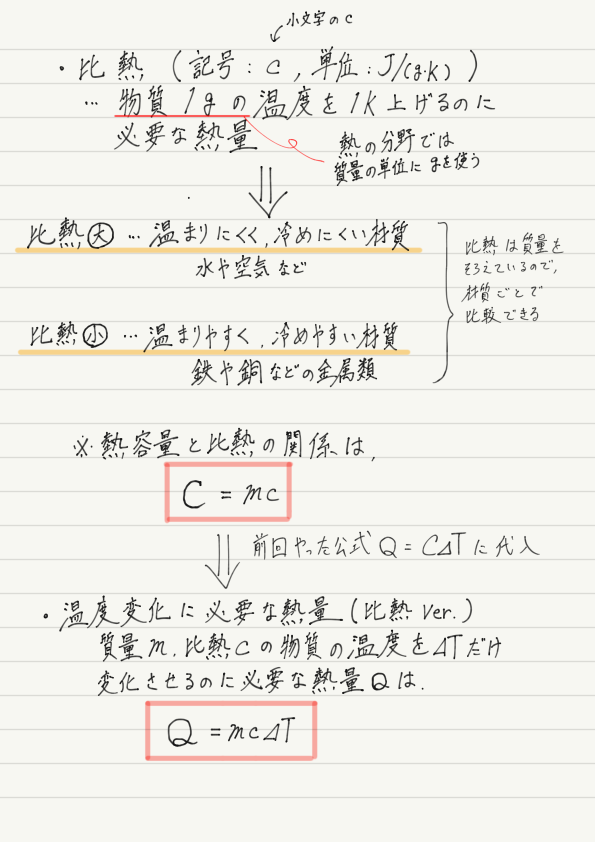 小文字のc
・比熱(記号:c,単位:J/(g·K))
…物質1gの温度を1K上げるのに
必要な熱量
熱の分野では
質量の単位にgを使う
比熱大…温まりにくく,冷めにくい材質
水や空気など
比熱は質量を
そろえているので,
材質ごとで
比較できる
比熱小…温まりやすく,冷めやすい材質
鉄や銅などの金属類
※熱容量と比熱の関係は,
C=mc
前回やった公式Q=CΔTに代入
・温度変化に必要な熱量(比熱ver.)
質量m,比熱cの物質の温度をΔTだけ
変化させるのに必要な熱量Qは.
Q=mcΔT